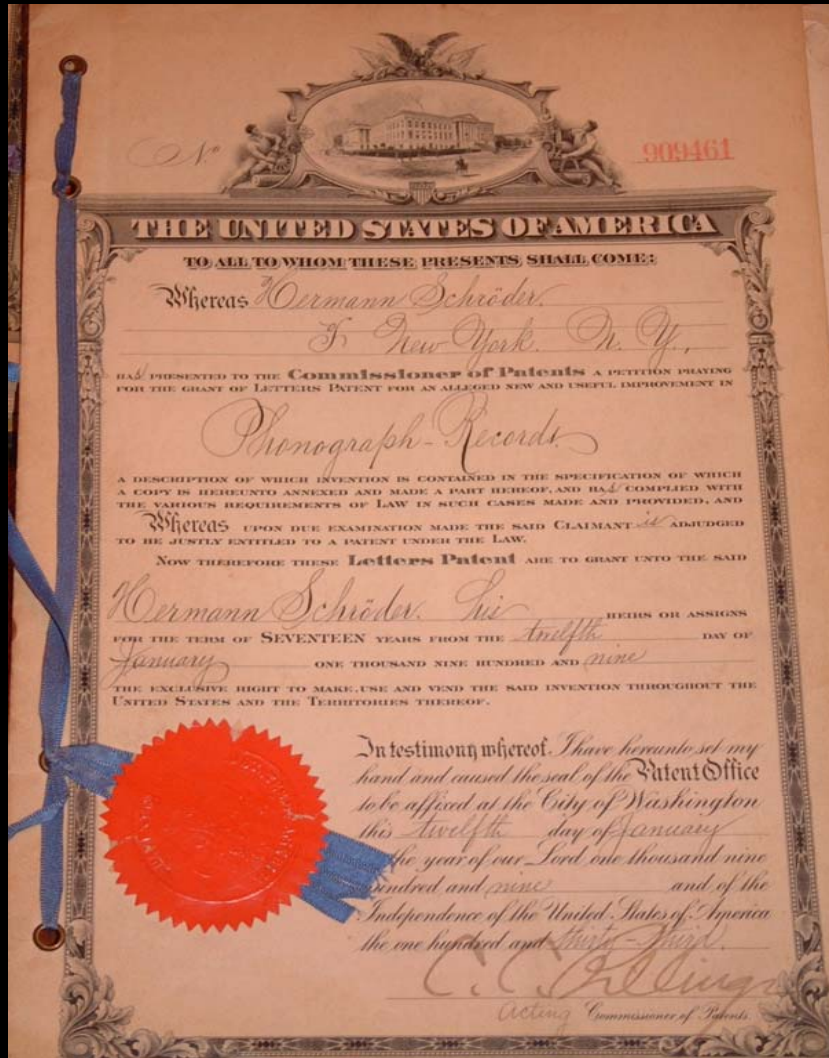 No. 909461
THE UNITED STATES OF AMERICA
TO ALL TO WHOM THESE PRESENTS SHALL COME:
Whereas Hermann Schröder,
of New York, N. Y.,
HAS PRESENTED TO THE Commissioner of Patents A PETITION PRAYING
FOR THE GRANT OF LETTERS PATENT FOR AN ALLEGED NEW AND USEFUL IMPROVEMENT IN
Phonograph-Records,
A DESCRIPTION OF WHICH INVENTION IS CONTAINED IN THE SPECIFICATION OF WHICH
A COPY IS HEREUNTO ANNEXED AND MADE A PART HEREOF, AND HAS COMPLIED WITH
THE VARIOUS REQUIREMENTS OF LAW IN SUCH CASES MADE AND PROVIDED, AND
Whereas UPON DUE EXAMINATION MADE THE SAID CLAIMANT is ADJUDGED
TO BE JUSTLY ENTITLED TO A PATENT UNDER THE LAW.
NOW THEREFORE THESE Letters Patent ARE TO GRANT UNTO THE SAID
Hermann Schröder, his HEIRS OR ASSIGNS
FOR THE TERM OF SEVENTEEN YEARS FROM THE twelfth DAY OF
January ONE THOUSAND NINE HUNDRED AND nine
THE EXCLUSIVE RIGHT TO MAKE, USE AND VEND THE SAID INVENTION THROUGHOUT THE
UNITED STATES AND THE TERRITORIES THEREOF.
In testimony whereof I have hereunto set my
hand and caused the seal of the Patent Office
to be affixed at the City of Washington
this twelfth day of January
the year of our Lord one thousand nine
hundred and nine and of the
Independence of the United States of America
the one hundred and thirty-third.
C. C. Billings
Acting Commissioner of Patents.